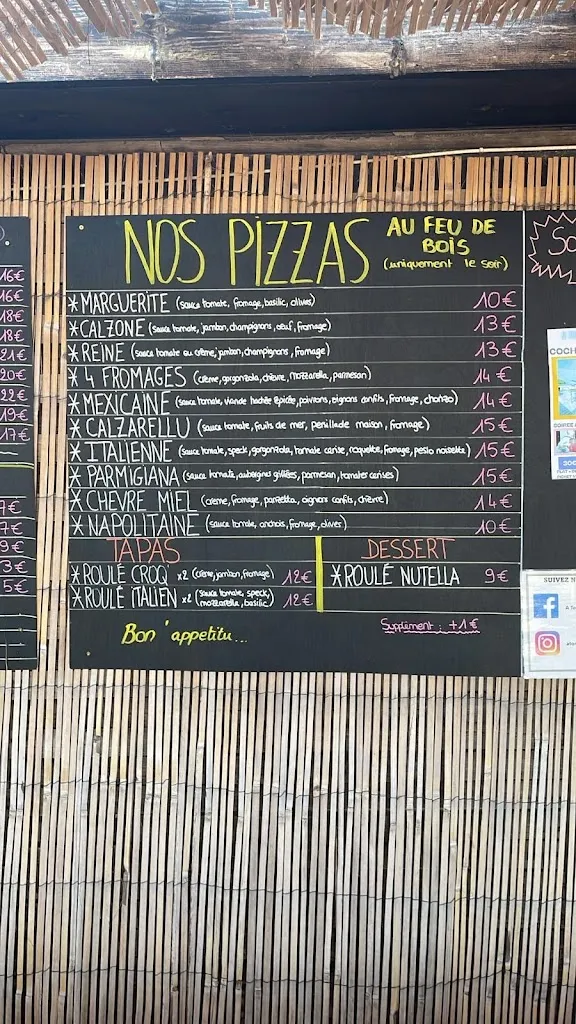 NOS PIZZAS
AU FEU DE
BOIS
(uniquement le soir)
*MARGUERITE (sauce tomate, fromage, basilic, olives) 10€
*CALZONE (sauce tomate, jambon, champignons, oeuf, fromage) 13€
*REINE (sauce tomate ou crème, jambon, champignons, fromage) 13€
*4 FROMAGES (crème, gorgonzola, chèvre, mozzarella, parmesan) 14€
*MEXICAINE (sauce tomate, viande hachée épicée, poivrons, oignons confits, fromage, chorizo) 14€
*CALZARELLU (sauce tomate, fruits de mer, persillade maison, fromage) 15€
*ITALIENNE (sauce tomate, speck, gorgonzola, tomate cerise, roquette, fromage, pesto noisette) 15€
*PARMIGIANA (sauce tomate, aubergines grillées, parmesan, tomates cerises) 15€
*CHEVRE MIEL (creme, fromage, panzetta, oignons confits, chèvre) 14€
*NAPOLITAINE (sauce tomate, anchois, fromage, olives) 10€
TAPAS
*ROULÉ CROQ' x2 (crème, jambon, fromage) 12€
*ROULÉ ITALIEN x2 (sauce tomate, speck,
mozzarella, basilic) 12€
DESSERT
*ROULÉ NUTELLA 9€
Supplément : +1€
Bon 'appetitu...
16€
16€
18€
18€
21€
20€
22€
19€
17€
7€
7€
9€
3€
5€
So
COCH
SUIVEZ N